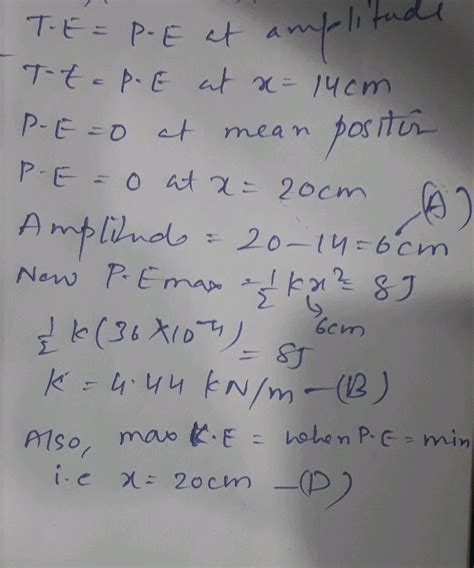 T.E = P.E at amplitude
T.E = P.E at x = 14cm
P.E = 0 at mean position
P.E = 0 at x = 20cm
(A)
Amplitude = 20 - 14 = 6cm
Now P.E max = 1/2 kx² = 8J
6cm
1/2 k (36 × 10⁻⁴) = 8J
K = 4.44 kN/m - (B)
Also, max K.E = when P.E = min
i.e x = 20cm - (D)